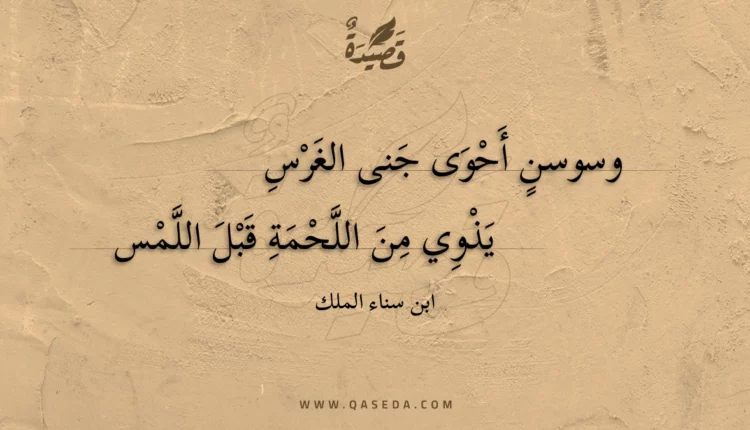 قَصِيدَةٌ
وسوسنٍ أَحْوَى جَنى الغَرْسِ
يَذْوِي مِنَ اللَّحْمَةِ قَبْلَ اللَّمْس
ابن سناء الملك
WWW.QASEDA.COM